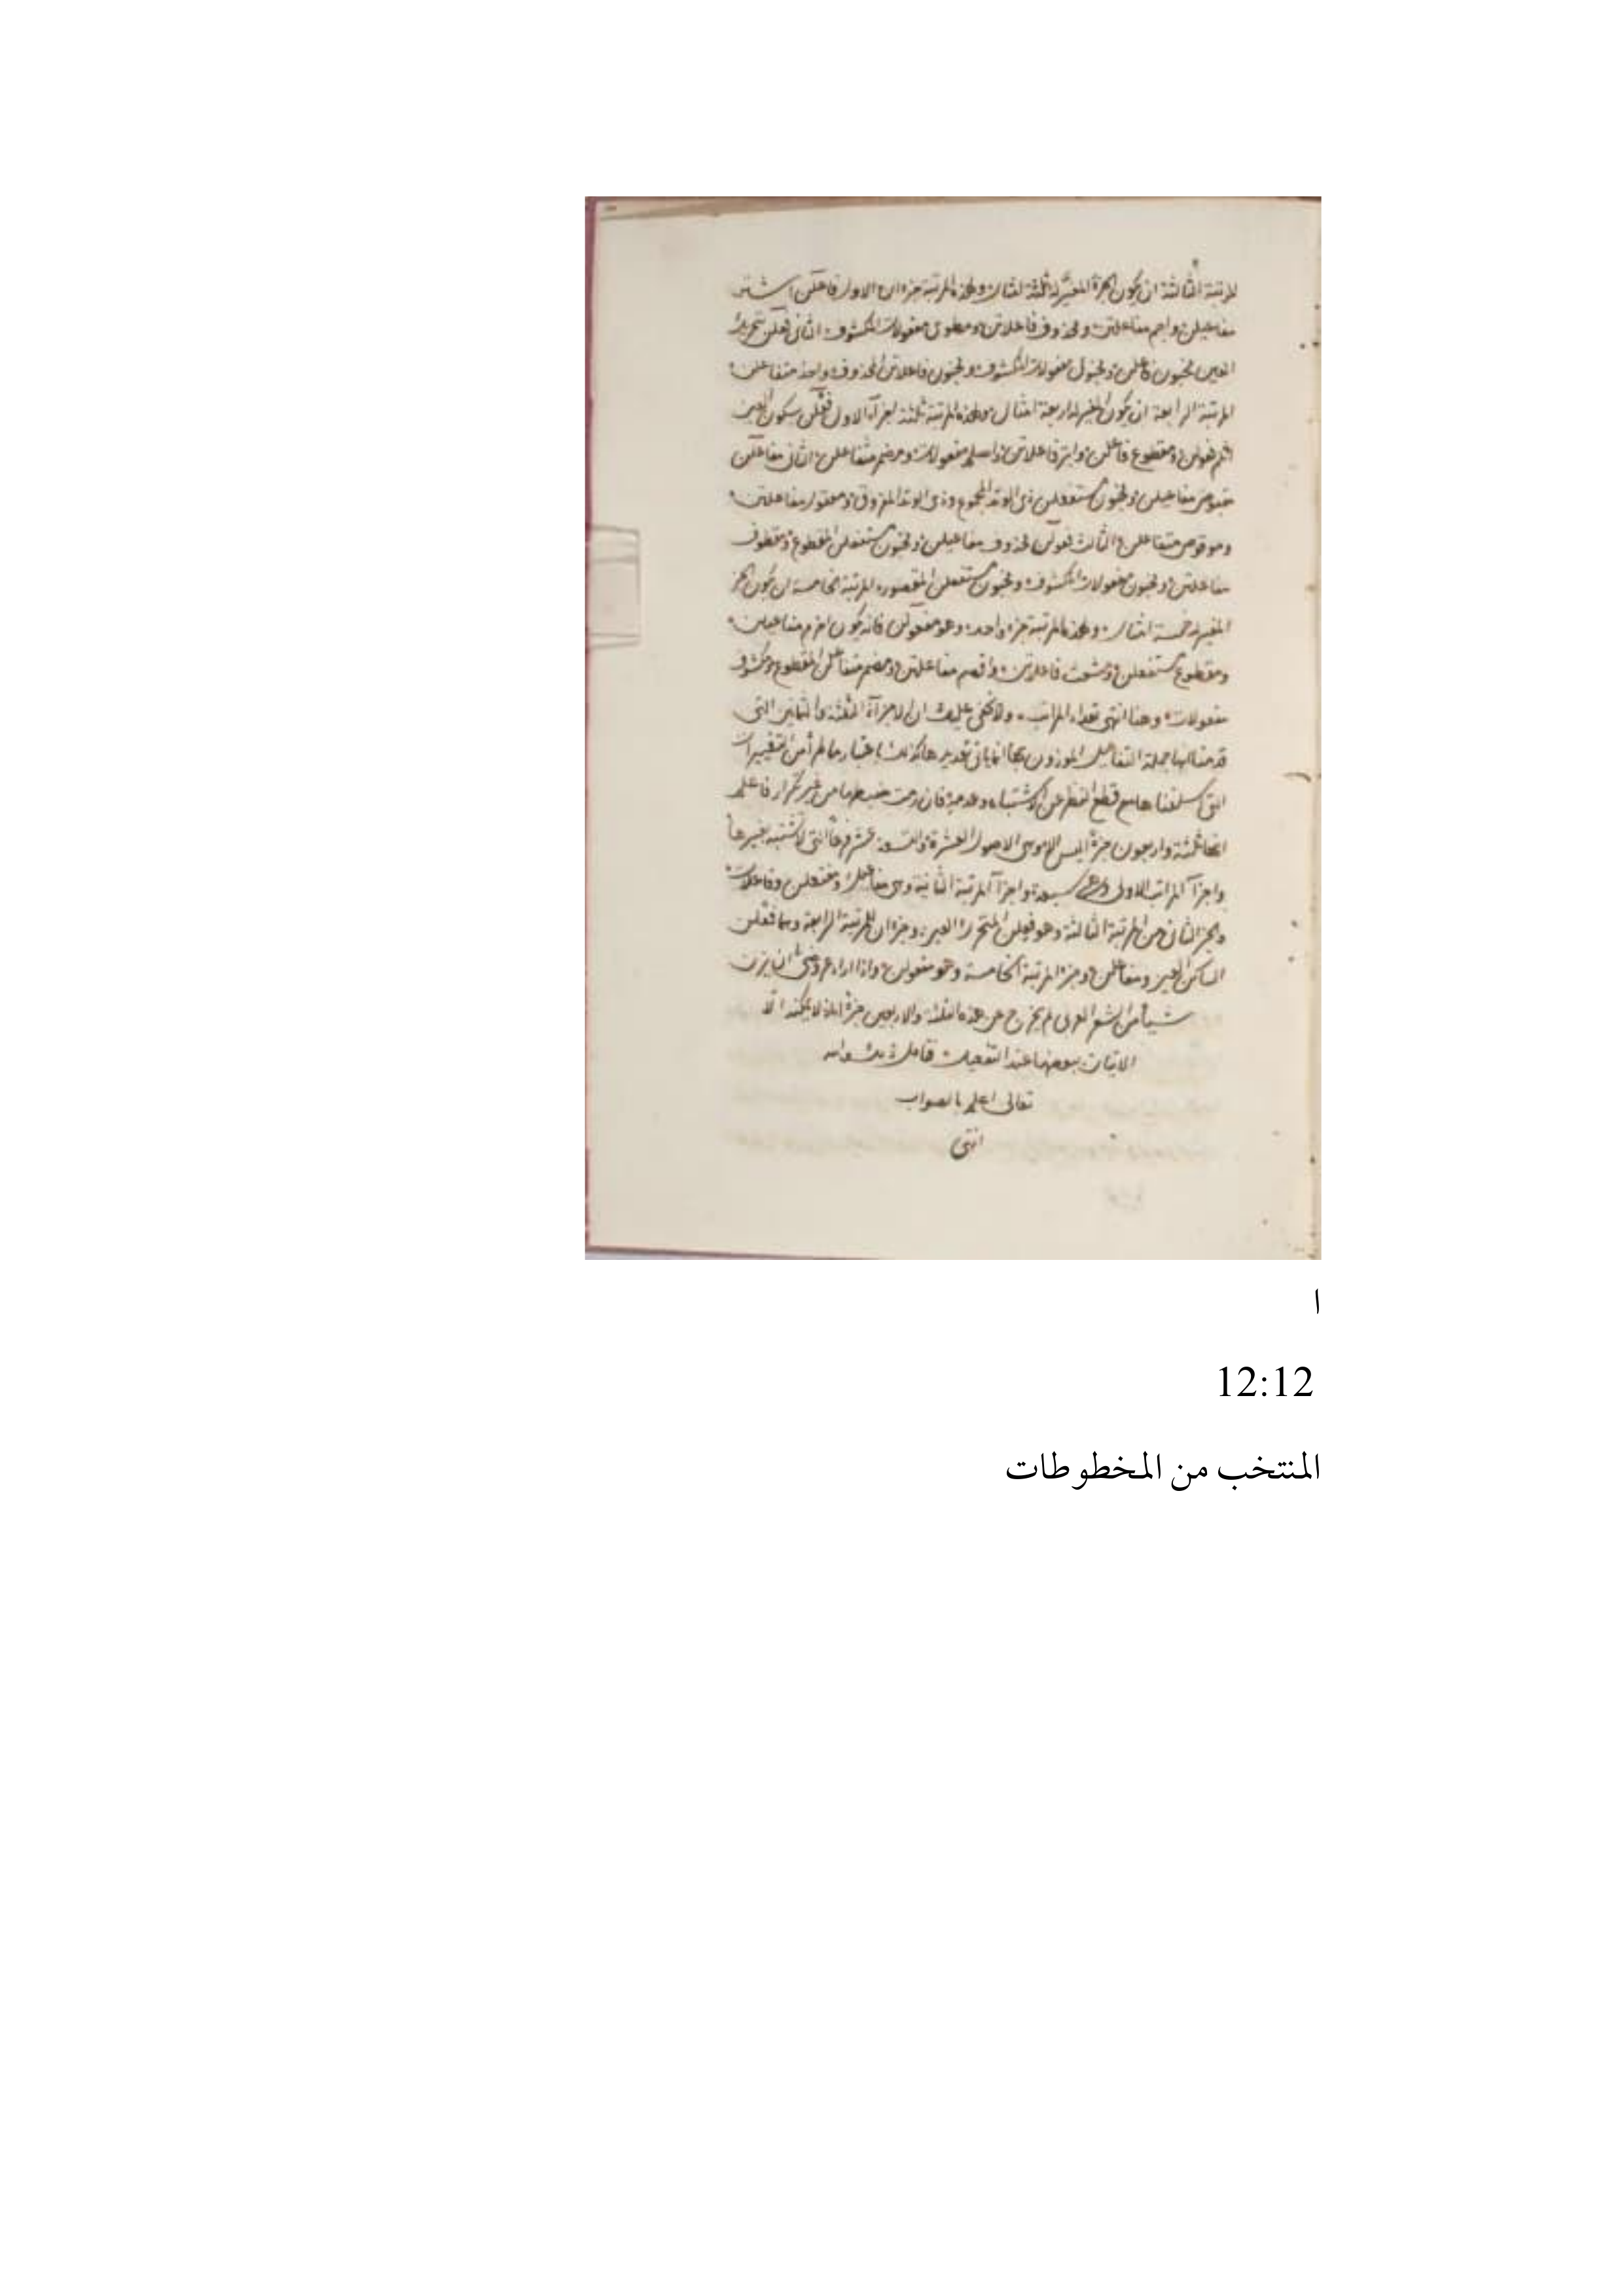 المرتبة الثالثة ان يكون الجزء المغير له ثلثة امثال ولهذه المرتبة جزءان الاول فاعلن اشتر
مفاعيلن واجم مفاعلتن ومحذوف فاعلاتن ومطوى مفعولات المكشوف الثانى فعلن بتحريك
العين مخبون فاعلن ومخبول مفعولات المكشوف ومخبون فاعلاتن المحذوف واحذ متفاعلن
المرتبة الرابعة ان يكون المغير له اربعة امثال ولهذه المرتبة ثلثة اجزآء الاول فعلن بسكون العين
اثلم فعولن ومقطوع فاعلن وابتر فاعلاتن واصلم مفعولات ومضمر متفاعلن الثانى مفاعلن
مقبوض مفاعيلن ومخبون مستفعلن ذى الوتد المجموع وذى الوتد المفروق ومعقول مفاعلتن
وموقوص متفاعلن الثالث فعولن محذوف مفاعيلن ومخبون مستفعلن المقطوع ومقطوف
مفاعلتن ومخبون مفعولات المكشوف ومخبون مستفعلن المقصور المرتبة الخامسة ان يكون الجزء
المغير له خمسة امثال ولهذه المرتبة جزء واحد وهو مفعولن فانه يكون اخرم مفاعيلن
ومقطوع مستفعلن ومشعث فاعلاتن واقصم مفاعلتن ومضمر متفاعلن المقطوع ومكشوف
مفعولات وهنا انتهى تعداد المراتب ولا يخفى عليك ان الاجزآء الثلثة والثمانين التى
قدمنا انها جملة التفاعيل الموزون بها انما يأتى تعديدها كذلك باعتبار ما طرأ من التغييرات
التى اسلفناها مع قطع النظر عن الاشتباه وعدمه فان رمت ضبطها من غير تكرار فاعلم
انها ثلثة واربعون جزءا ليس الا وهى الاصول العشرة والتسعة عشر فرعا التى لا تشتبه بغيرها
واجزآء المراتب الاولى وهى سبعة واجزآء المرتبة الثانية وهى مفاعيل ومفتعلن وفاعلات
والجزء الثانى من المرتبة الثالثة وهو فعلن المتحرك العين وجزءان للمرتبة الرابعة وهما فعلن
الساكن العين ومفاعلن وجزء المرتبة الخامسة وهو مفعولن واذا اراد عروضى ان يزن
شيأ من الشعر العربى لم يخرج عن هذه الثلثة والاربعين جزءا اذ لا يمكنه الا
الاتيان ببعضها عند التفعيل فتأمل والله
تعالى اعلم بالصواب
انتهى
ا
12:12
المنتخب من المخطوطات